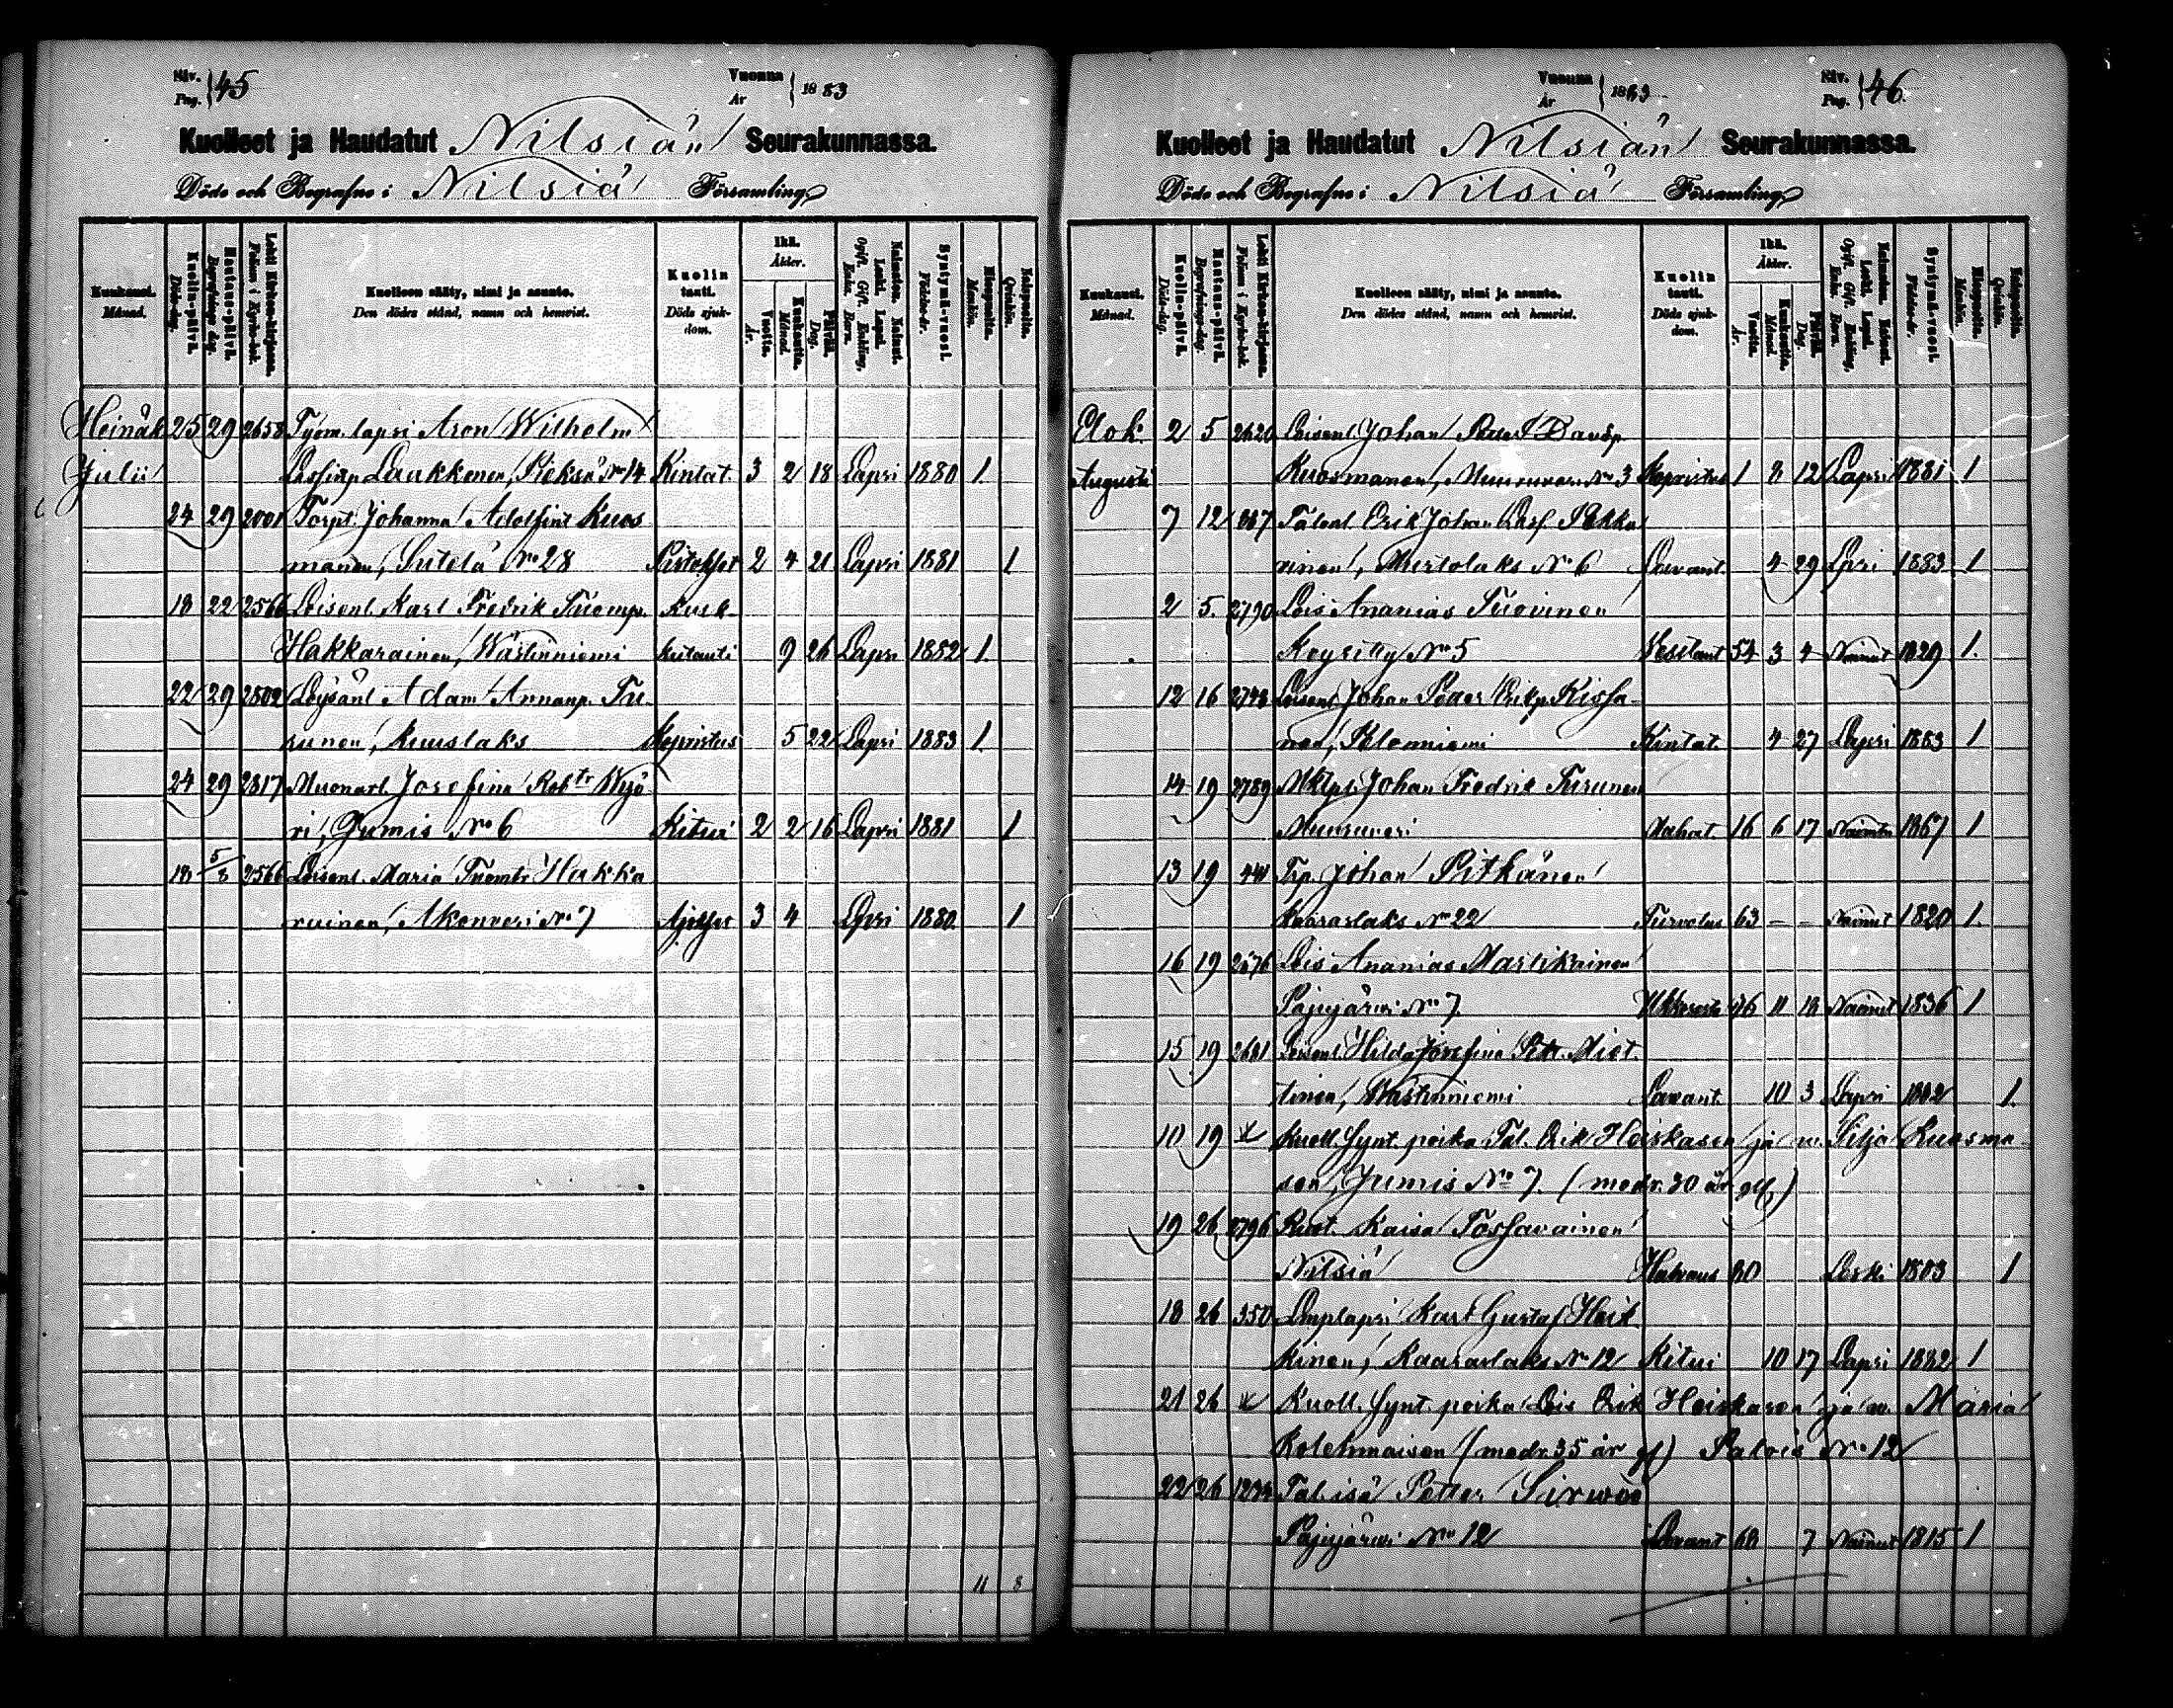 Siv. Pag. 45
Vuonna År 1883
Kuolleet ja Haudatut Nilsiän Seurakunnassa.
Döde och Begrafne i Nilsiä Församling
Kuukausi. Månad.
Kuolin-päivä. Döds-dag.
Hautaus-päivä. Begrafnings dag.
Lehti Kirkon-kirjassa. Folium i Kyrko-bok.
Kuolleen sääty, nimi ja asunto. Den dödes stånd, namn och hemvist.
Kuolin tauti. Döds sjuk-dom.
Ikä. Ålder.
Vuotta. År.
Kuukautta. Månad.
Päivää. Dag.
Naimaton. Nainut. Leski. Lapsi. Ogift. Gift. Enkling. Enka. Barn.
Syntymä-vuosi. Födelse-år.
Miespuolta. Mankön.
Vaimopuolta. Qvinkön.
Heinäk 25 29 2658 Työm. lapsi Aron Wilhelm
Julii Laakkonen, Pieksä No 14 Kintat. 3 2 18 Lapsi 1880 1.
24 29 2001 Torpl. Johanna Adolfint Kuos
manen, Sutelä No 28 2 4 21 Lapsi 1881 1
18 22 2566 Loisenl. Karl Fredrik Tuomp.
Hakkarainen, Wästinniemi 9 26 Lapsi 1882 1.
22 29 2802 Adam Annanp. Tu
runen, Kuuslaks Kopristus 5 22 Lapsi 1883 1.
24 29 2817 Muonarl. Josefina Robtr Wyö
ri, Jumis No 6 Kitui 2 2 16 Lapsi 1881 1
18 5/8 2566 Loisenl. Maria Tuomtr Hakka
rainen, Akonvesi No 7 3 4 Lapsi 1880. 1
11 8
Vuonna År 1883
Siv. Pag. 46.
Kuolleet ja Haudatut Nilsiän Seurakunnassa.
Döde och Begrafne i Nilsiä Församling
Kuukausi. Månad.
Kuolin-päivä. Döds-dag.
Hautaus-päivä. Begrafnings-dag.
Lehti Kirkon-kirjassa. Folium i Kyrko-bok.
Kuolleen sääty, nimi ja asunto. Den dödes stånd, namn och hemvist.
Kuolin tauti. Döds sjuk-dom.
Ikä. Ålder.
Vuotta. År.
Kuukautta. Månad.
Päivää. Dag.
Naimaton. Nainut. Leski. Lapsi. Ogift. Gift. Enkling. Enka. Barn.
Syntymä-vuosi. Födelse-år.
Miespuolta. Mankön.
Vaimopuolta. Qvinkön.
Elok. 2 5 2620 Loisenl. Johan Davidp.
Augusti Kuosmanen, Muuruvesi No 3 Kopristus 1 8 12 Lapsi 1881 1
7 12 Talonl. Erik Johan Pekka
rinen, No 6 Lavant. 4 29 Lpsi 1883 1
2 5. 2790 Lois Ananias Tuovinen
Keyritty No 5 Vesitaut 54 3 4 Nainut 1829 1.
12 16 2748 Loisenl. Johan Peder Erikp. Kissa
nen, Pelonniemi Kintat. 4 27 Lapsi 1883 1
14 19 2789 Johan Fredrik Tirunen
Muuruvesi Mahat. 16 6 17 1867 1
13 19 441 Trp. Johan Pitkänen
Kaaraslaks No 22 Turvotus 63 - - Nainut 1820 1.
16 19 2576 Lois Ananias Martikainen
Pajujärwi No 7. 46 11 18 Nainut 1836 1
15 19 2681 Loisenl. Hilda Josefina Pettr. Miet
tinen, Wästinniemi Lavant. 10 3 Lapsi 1882 1.
10 19 * Kuoll. synt. poika Tal. Erik Heiskasen ja w. Silja Kuosma
sen, Jumis No 7. (modr. 30 år gl)
19 26 2796 Ruot. Kaisa Tossavainen
Nilsiä Halvaus 80 Leski 1803 1
18 26 350 Lmplapsi Karl Gustaf Heik
kinen, Kaaraslaks No 12 Kitui 10 17 Lapsi 1882 1
21 26 * Kuoll. synt. poika Lois Erik Heiskasen ja w. Maria
Kolehmaisen (modr. 35 år gl) Palois No 12
22 26 Tal. isä Petter Sirwiö
Pajujärwi No 12 Lavant 68 7 Nainut 1815 1